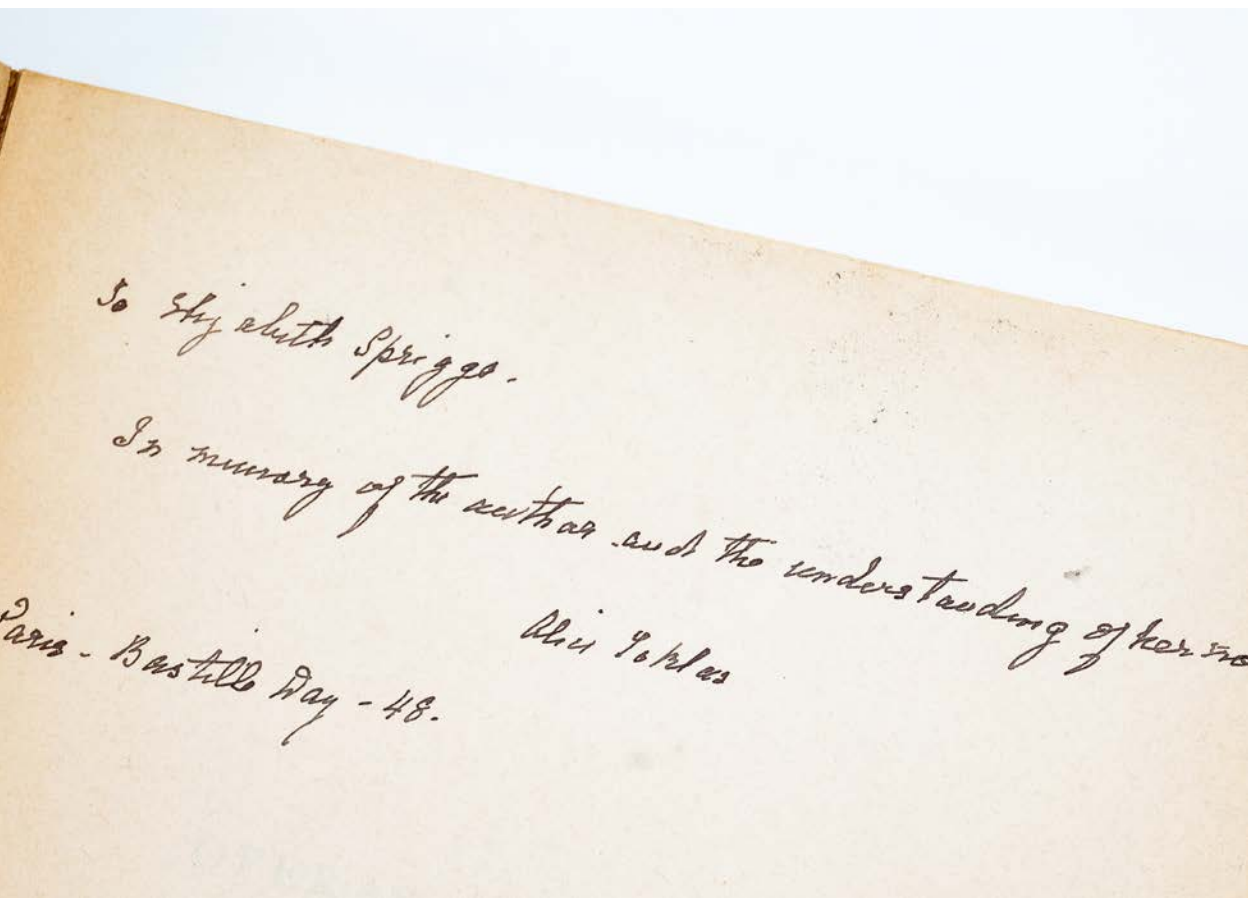 To Elizabeth Sprigge.
In memory of the author and the understanding of her
Alice Toklas
Paris - Bastille Day - 48.